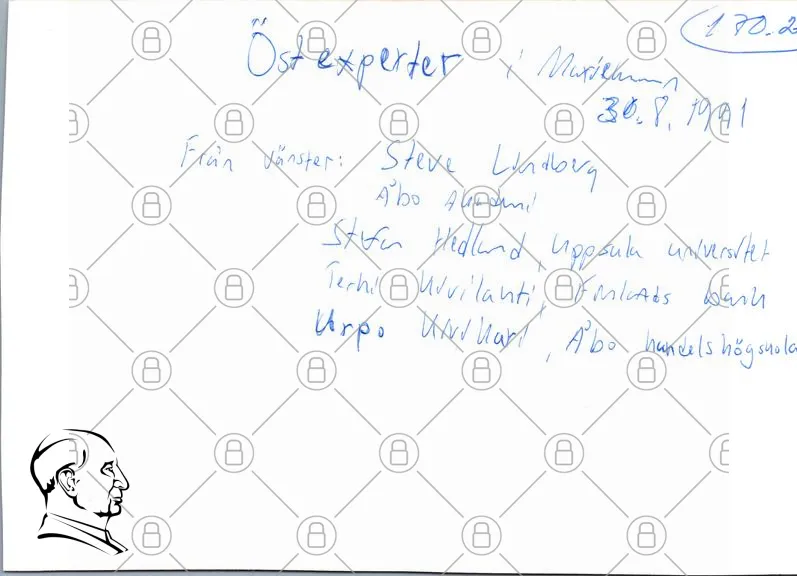 170.2
Östexperter i Mariehamn
30.8.1991
Från vänster: Steve Lindberg
Åbo Akademi
Stefan Hedlund, Uppsala universitet
Terhi Kivilahti, Finlands bank
Urpo Kivikari, Åbo handelshögskola